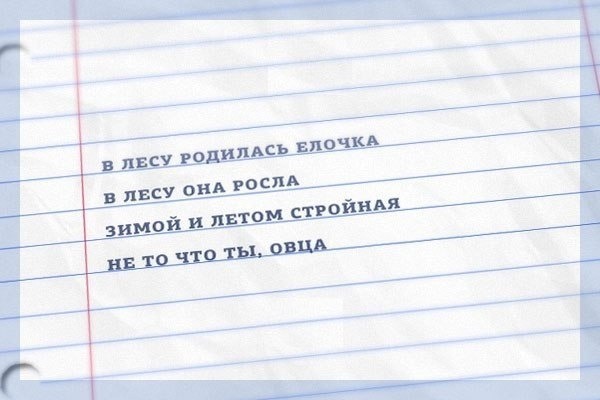 В ЛЕСУ РОДИЛАСЬ ЕЛОЧКА
В ЛЕСУ ОНА РОСЛА
ЗИМОЙ И ЛЕТОМ СТРОЙНАЯ
НЕ ТО ЧТО ТЫ, ОВЦА